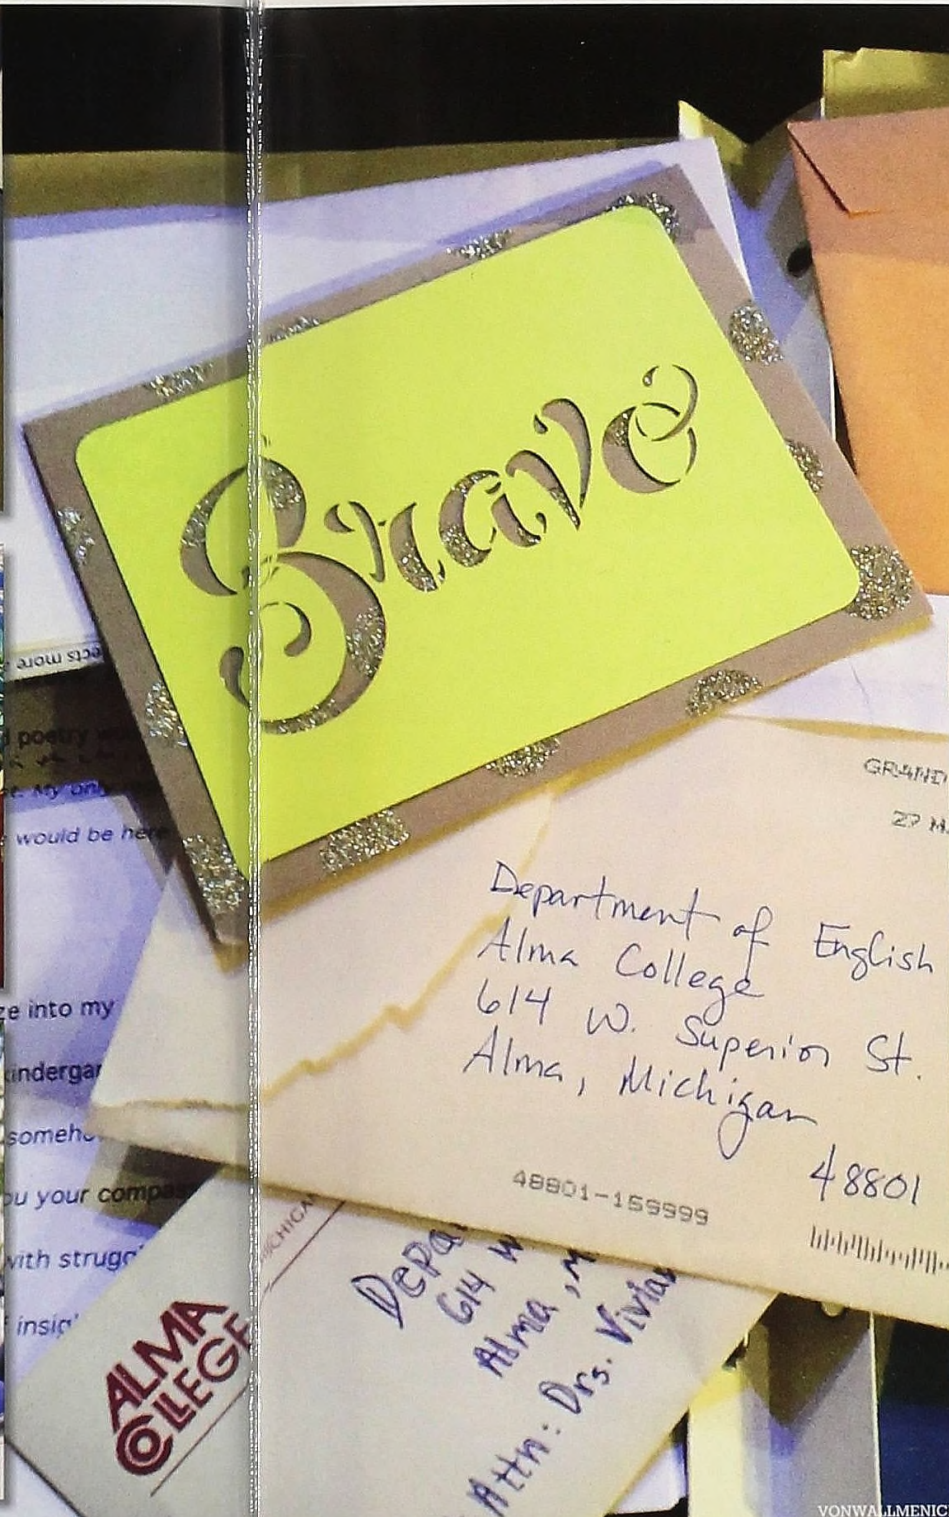 Bravo
ects more
d poetry
et. My only
would be here
ze into my
kindergar
someho
ou your compass
with strugg
insig
GRAND
27 M
Department of English
Alma College
614 W. Superior St.
Alma, Michigan
48801
48801-159999
MICHIGAN
ALMA
COLLEGE
Depa
614 W
Alma, M
Attn: Drs. Vivian
VONWALLMENIC